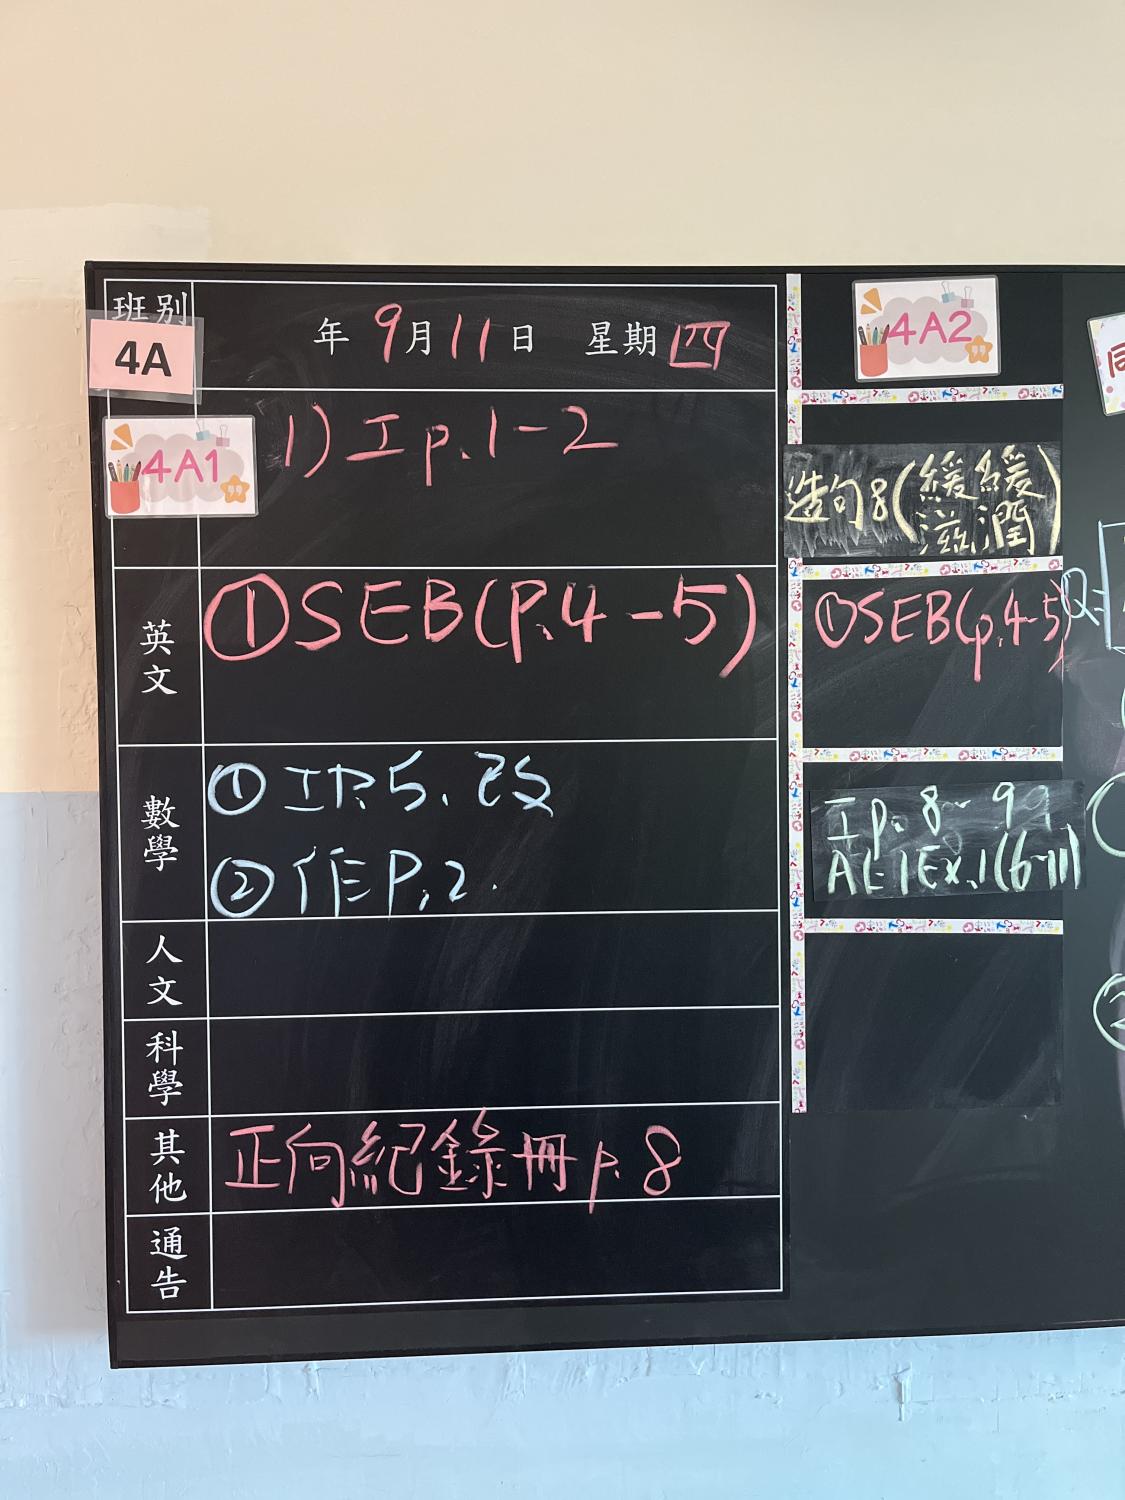 班別
4A
年 9月11日 星期四
4A1
1) 工 p.1-2
英文
① SEB (P.4-5)
數學
① 工P.5、改
② 作 P.2.
人文
科學
其他
正向紀錄冊 p.8
通告
4A2
造句8(緩緩
滋潤)
① SEB (p.4-5)
工 p. 8-9
Ex.1(6-11)